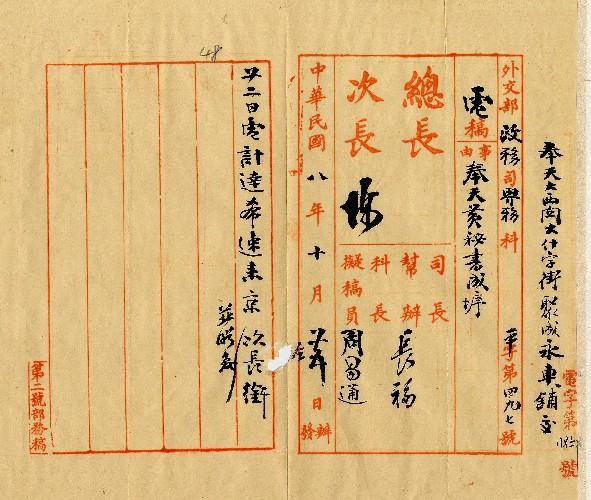 奉天大西關大什字街聚成永車鋪交
電字第 號
外交部政務司界務科 字第四九七號
電稿
事由 奉天黃秘書成㙷
總長
次長 陳
司長
幫辦 長福
科長
擬稿員 周易通
中華民國八年十月 日辦發
廿二日電計達希速來京
次長銜
48
第二號部務稿